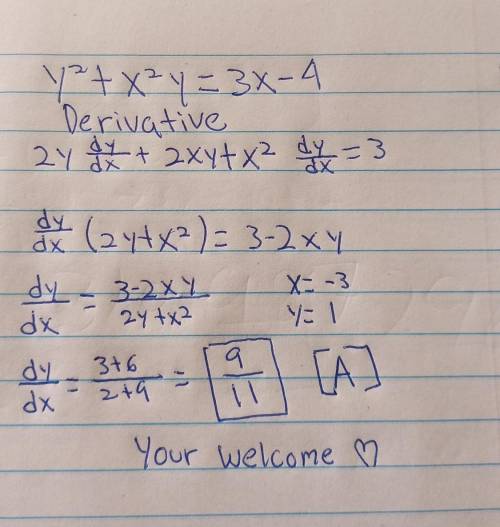 y² + x²y = 3x - 4
Derivative
2y dy/dx + 2xy + x² dy/dx = 3
dy/dx (2y + x²) = 3 - 2xy
dy/dx = 3 - 2xy / 2y + x² x = -3
y = 1
dy/dx = 3 + 6 / 2 + 9 = 9/11 [A]
Your welcome ♡